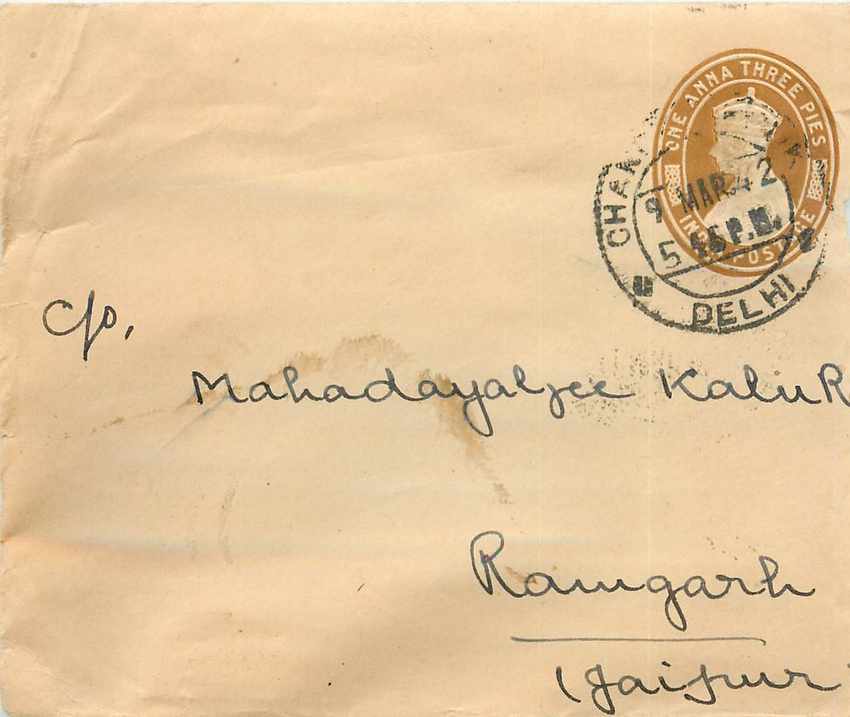 ONE ANNA THREE PIES
INDIA POSTAGE
9 MAR.42
5 45 P.M.
DELHI
C/o,
Mahadayaljee Kalu R
Ramgarh
(Jaipur